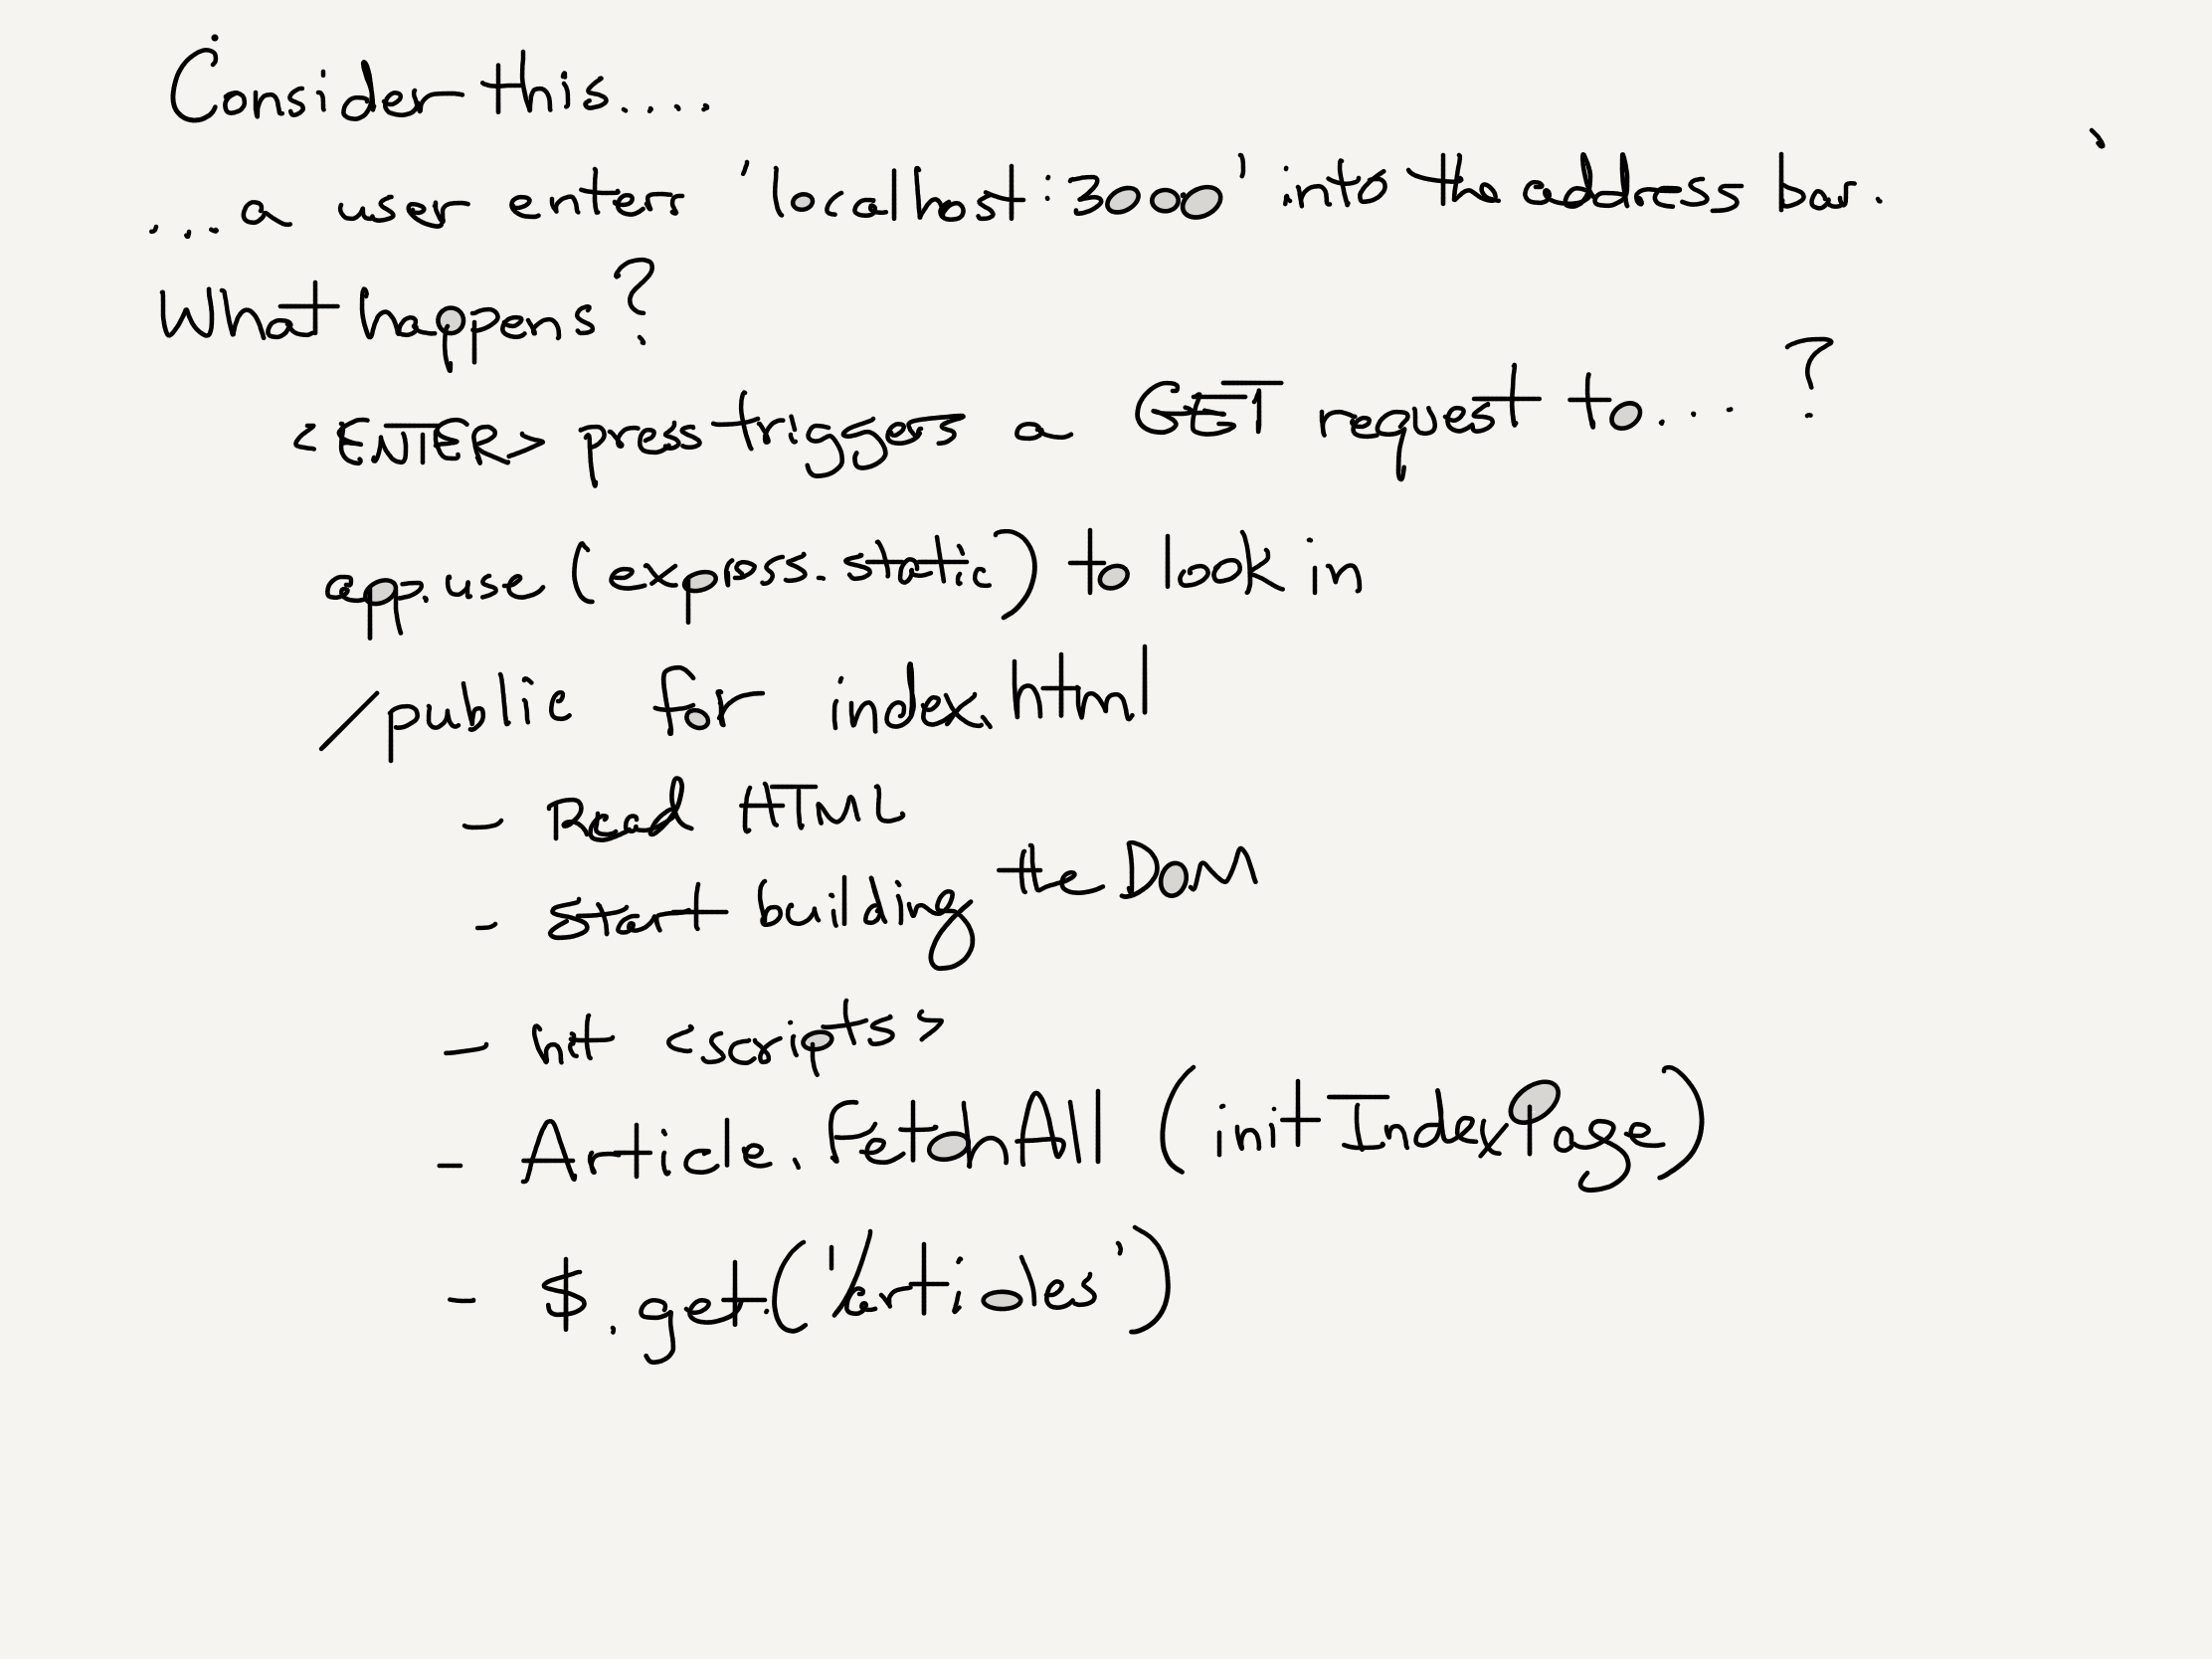 Consider this....
...a user enters 'localhost:3000' into the address bar.
What happens?
<ENTER> press triggers a GET request to...?
app.use (express.static) to look in
/public for index.html
- Read HTML
- start building the DOM
- hit <scripts>
- Article.FetchAll (initIndexPage)
- $.get('/articles')